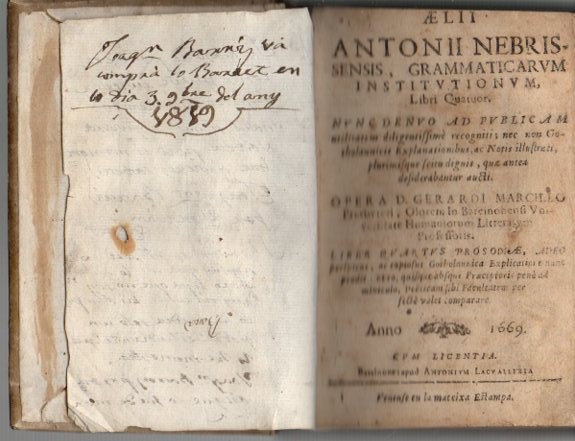 Joaqn va
comprá lo en
lo dia 3. 9bre del any
1819
ÆLII
ANTONII NEBRIS-
SENSIS, GRAMMATICARVM
INSTITVTIONVM,
Libri Quatuor.
NVNC DENVO AD PVBLICAM
utilitatem diligentissimè recogniti; nec non Go-
tholaunicis Explanationibus, ac Notis illustrati,
plurimisque scitu dignis, quæ antea
desiderabantur aucti.
OPERA D. GERARDI MARCILLO
Presbyteri, Oloten. In Barcinonensi Vni-
versitate Humaniorum Litterarum
Professoris.
LIBER QVARTVS PROSODIÆ, ADEO
ac copiosus Gotholaunica Explicatione nunc
absque Præceptoris penè ad
miniculo, Poëticam sibi Facultatem per
se valet comparare.
Anno 1669.
CVM LICENTIA.
Barcinone: apud ANTONIVM LACVALLERIA
Venense en la mateixa Estampa.